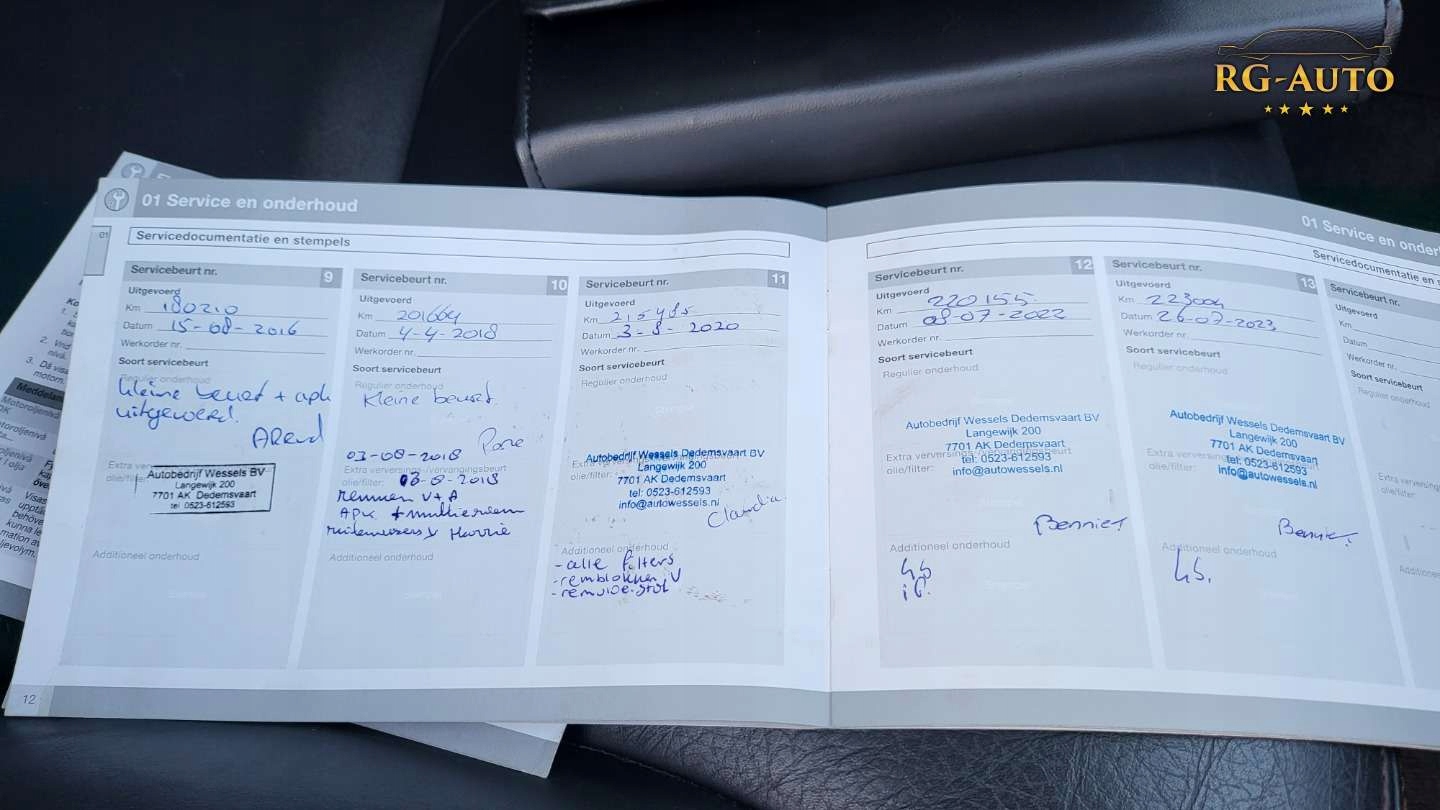 RG-AUTO
01 Service en onderhoud
01
Servicedocumentatie en stempels
Servicebeurt nr. 9
Uitgevoerd
Km 180210
Datum 15-08-2016
Werkorder nr.
Soort servicebeurt
Regulier onderhoud
kleine beurt + apk
uitgevoerd!
Arend
Extra
olie/filter:
Autobedrijf Wessels BV
Langewijk 200
7701 AK Dedemsvaart
tel 0523-612593
Additioneel onderhoud
12
Servicebeurt nr. 10
Uitgevoerd
Km 201664
Datum 4-4-2018
Werkorder nr.
Soort servicebeurt
Regulier onderhoud
Kleine beurt.
03-08-2018
Extra verversings-/vervangingsbeurt
olie/filter: 03-8-2018
remmen V+A
APK + multiriem
ruitenwissers V Harrie
Additioneel onderhoud
Servicebeurt nr. 11
Uitgevoerd
Km 215485
Datum 3-8-2020
Werkorder nr.
Soort servicebeurt
Regulier onderhoud
Extra
olie/filter:
Autobedrijf Wessels Dedemsvaart BV
Langewijk 200
7701 AK Dedemsvaart
tel: 0523-612593
info@autowessels.nl
Claudia
Additioneel onderhoud
- alle filters
- remblokken V
- remvloeistof
01 Service en onder
Servicedocumentatie en s
Servicebeurt nr. 12
Uitgevoerd
Km 220155
Datum 08-07-2022
Werkorder nr.
Soort servicebeurt
Regulier onderhoud
Autobedrijf Wessels Dedemsvaart BV
Langewijk 200
7701 AK Dedemsvaart
Extra verversings-/vervangingsbeurt
olie/filter:
tel: 0523-612593
info@autowessels.nl
Bennie
Additioneel onderhoud
Servicebeurt nr. 13
Uitgevoerd
Km 223004
Datum 26-07-2023
Werkorder nr.
Soort servicebeurt
Regulier onderhoud
Autobedrijf Wessels Dedemsvaart BV
Langewijk 200
7701 AK Dedemsvaart
Extra
olie/filter:
tel: 0523-612593
info@autowessels.nl
Bennie
Additioneel onderhoud
Servicebeurt nr.
Uitgevoerd
Km
Datum
Werkorder nr.
Soort servicebeurt
Regulier onderhoud
Extra verversings
olie/filter:
Additione